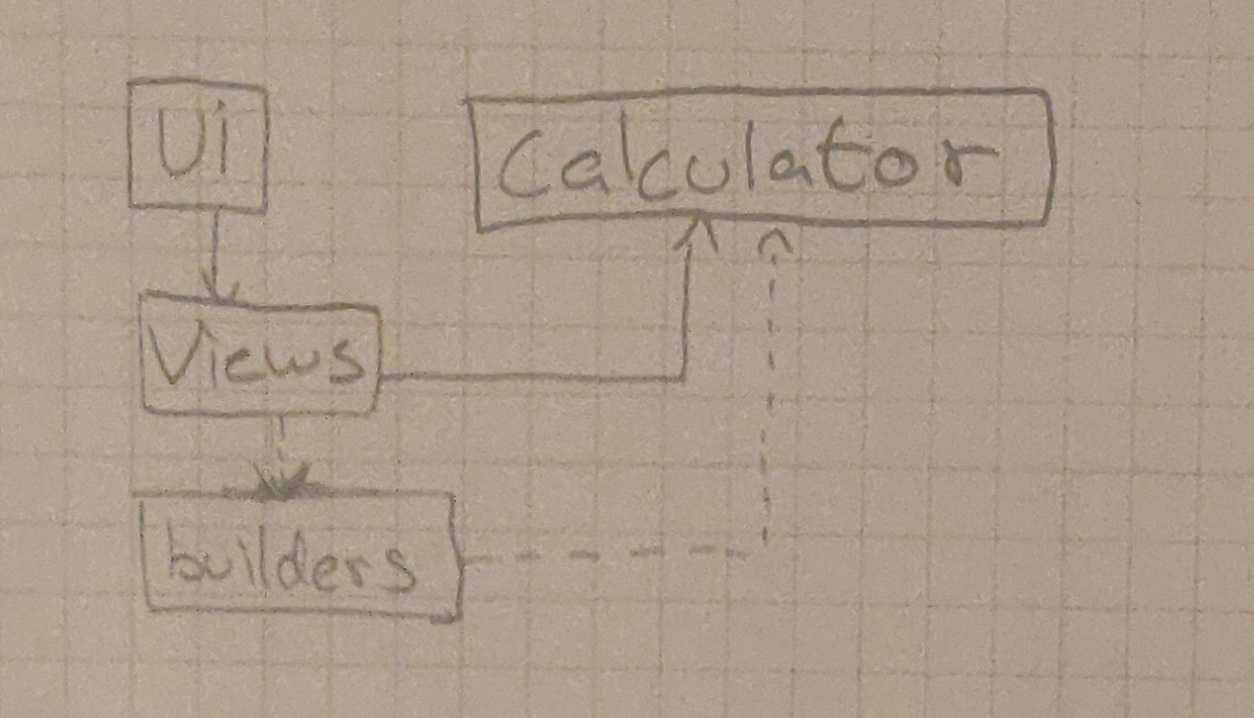 Ui
Calculator
Views
builders